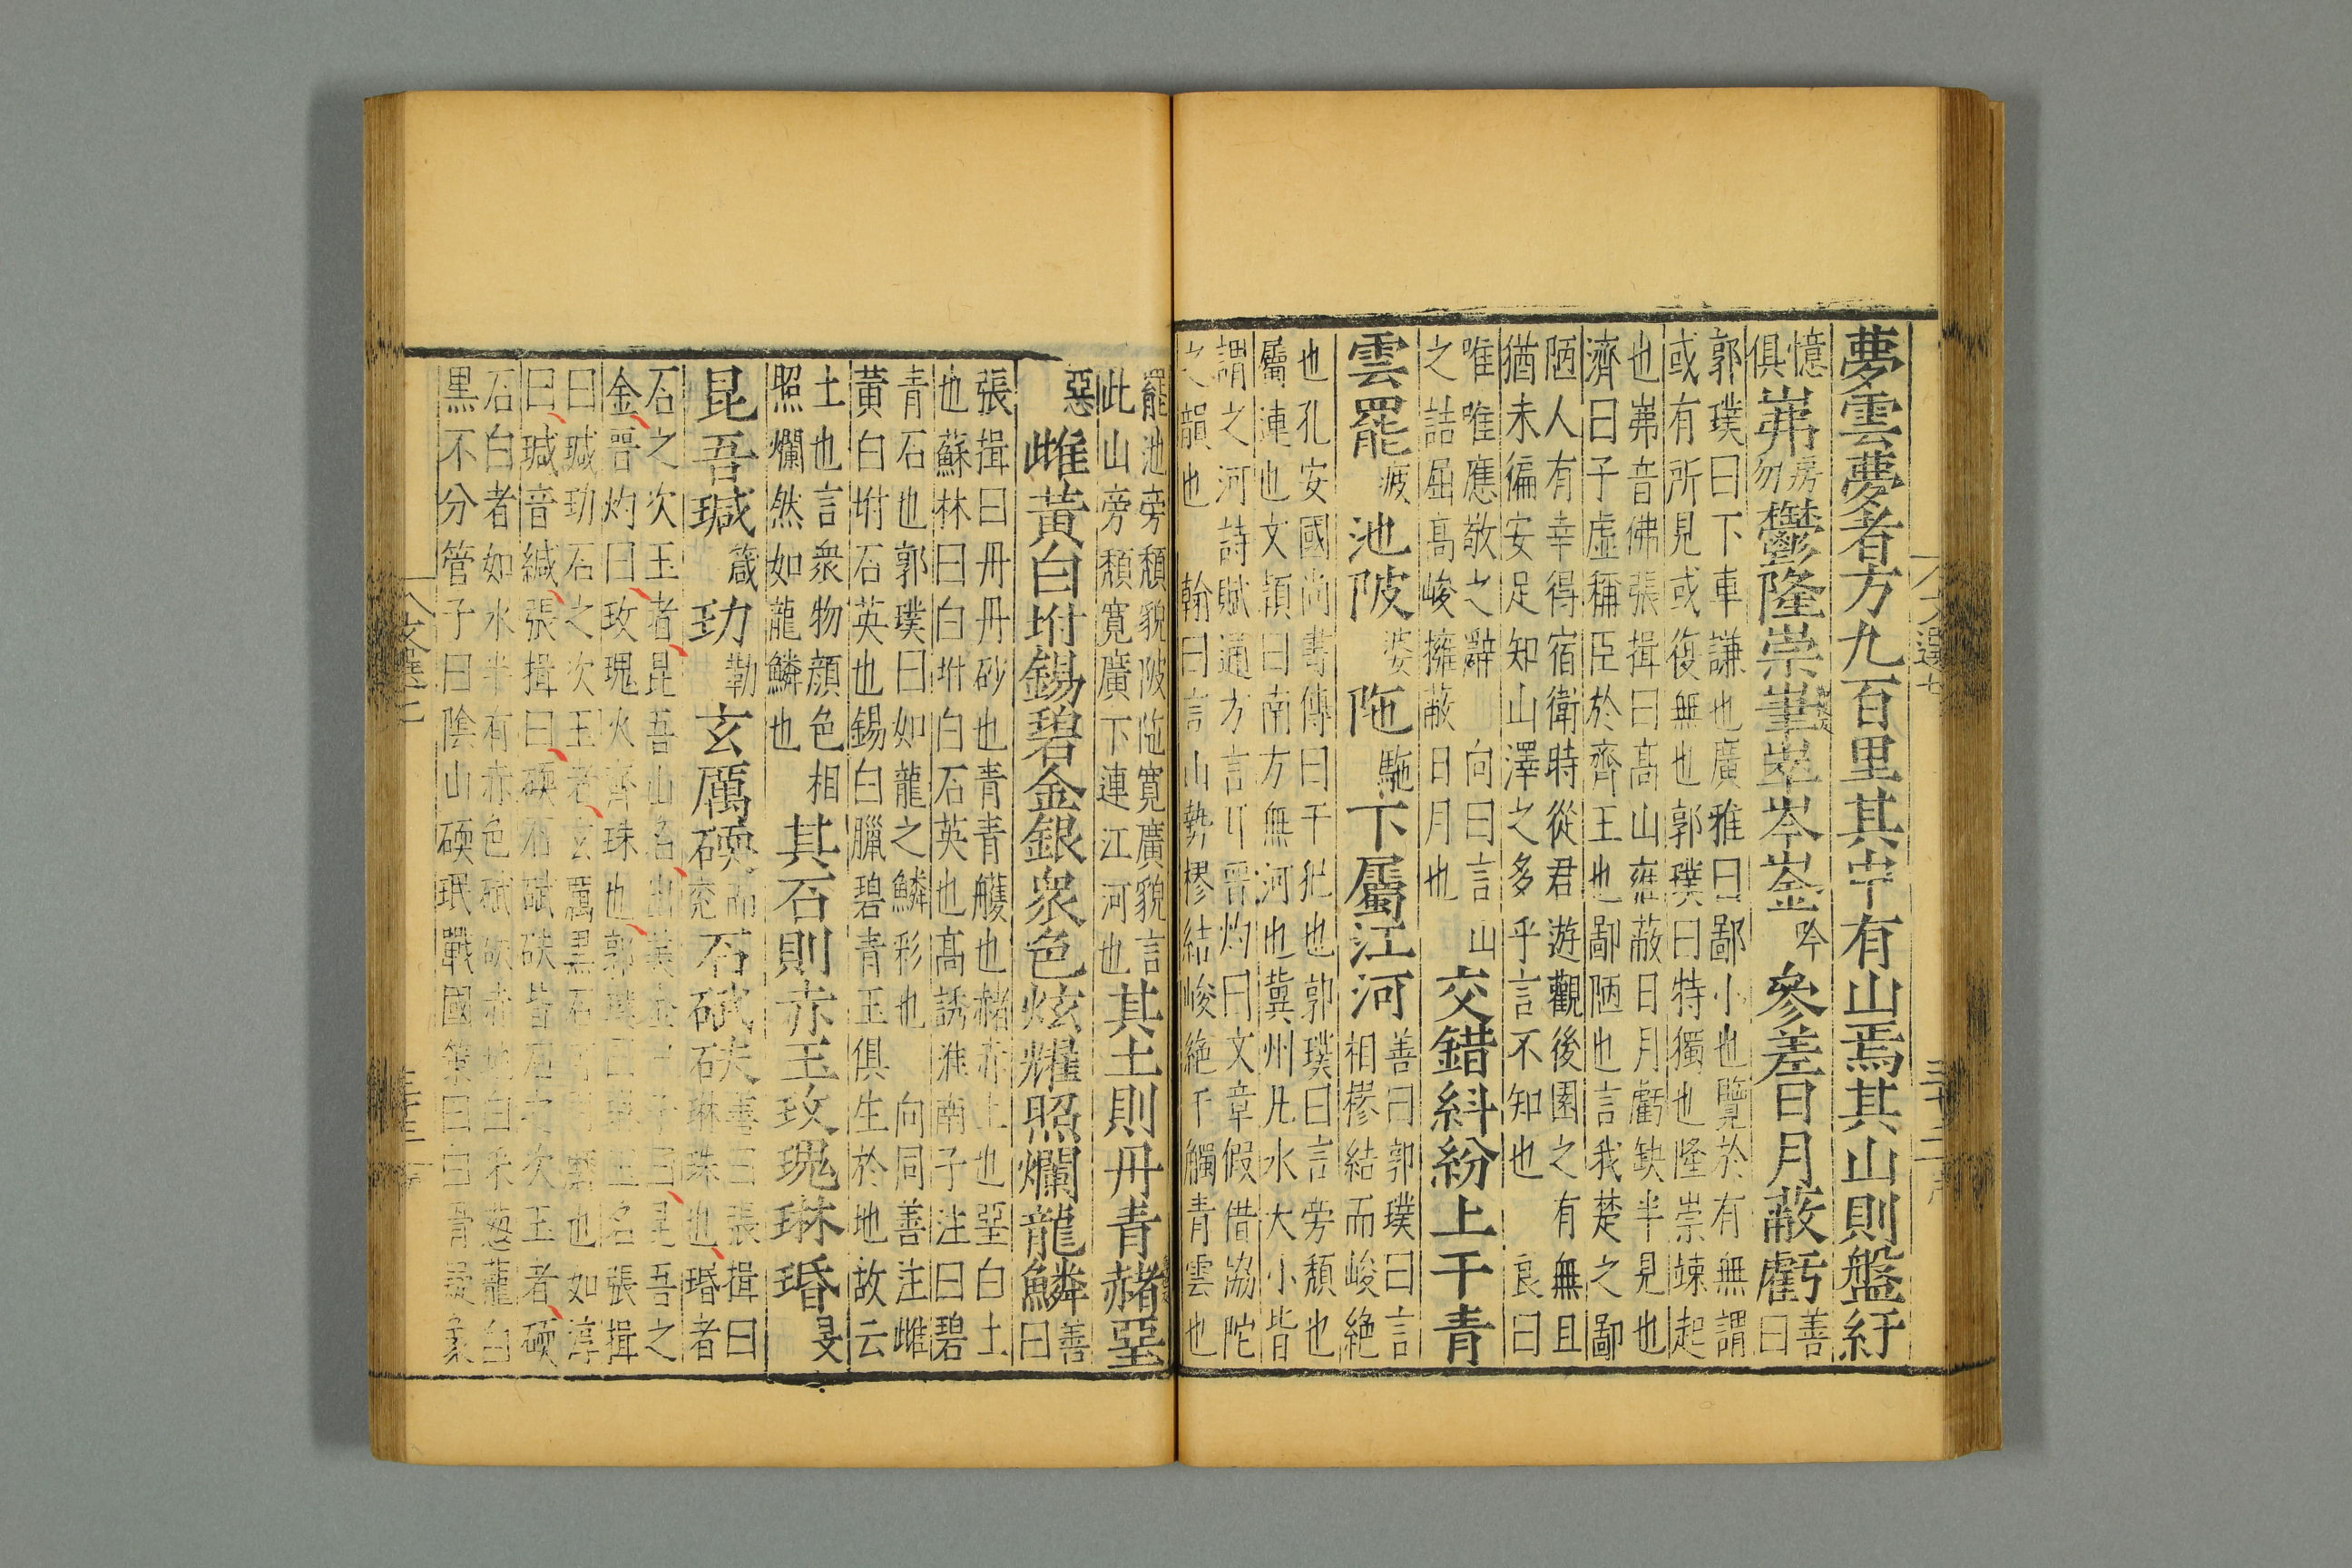 夢雲夢者方九百里其中有山焉其山則盤紆
憶俱岪房勿鬱隆崇嵂崒岑崟吟參差日月蔽虧善曰
郭璞曰下車謙也廣雅曰鄙小也覽於有無謂
或有所見或復無也郭璞曰特獨也隆崇竦起
也岪音佛張揖曰高山壅蔽日月虧缺半見也
濟曰子虛稱臣於齊王也鄙陋也言我楚之鄙
陋人有幸得宿衛時從君遊觀後園之有無且
猶未徧安足知山澤之多乎言不知也 良曰
唯唯應敬之辭 向曰言山
之詰屈髙峻擁蔽日月也
交錯糾紛上干青
雲罷疲池陂婆陁駞下屬江河
善曰郭璞曰言
相摎結而峻絶
也孔安國尚書傳曰干犯也郭璞曰言旁頽也
屬連也文頴曰南方無河也冀州凡水大小皆
謂之河詩賦通方言耳晉灼曰文章假借協陀
之韻也 翰曰言山勢樛結峻絶干觸青雲也
罷池旁頽貌陂陁寛廣貌言
此山旁頽寛廣下連江河也
其土則丹青赭堊
惡雌黄白坿錫碧金銀衆色炫燿照爛龍鱗善曰
張揖曰丹丹砂也青青雘也赭赤土也堊白土
也蘇林曰白坿白石英也髙誘淮南子注曰碧
青石也郭璞曰如龍之鱗彩也 向同善注雌
黄白坿石英也錫白臘碧青玉俱生於地故云
土也言衆物顔色相
照爛然如龍鱗也
其石則赤玉玫瑰琳珉旻
昆吾瑊箴玏勒玄厲碝而兖石碔砆
善曰張揖曰
石琳珠也珉者
石之次玉者昆吾山名出美金尸子曰昆吾之
金晉灼曰玫瑰火齊珠也郭璞曰琳玉名張揖
曰瑊玏石之次玉者玄厲黒石可用磨也如淳
曰瑊音緘張揖曰碝石碔砆皆石之次玉者碝
石白者如水半有赤色碔砆赤地白采葱蘢白
黒不分管子曰陰山碝珉戰國策曰白骨疑象